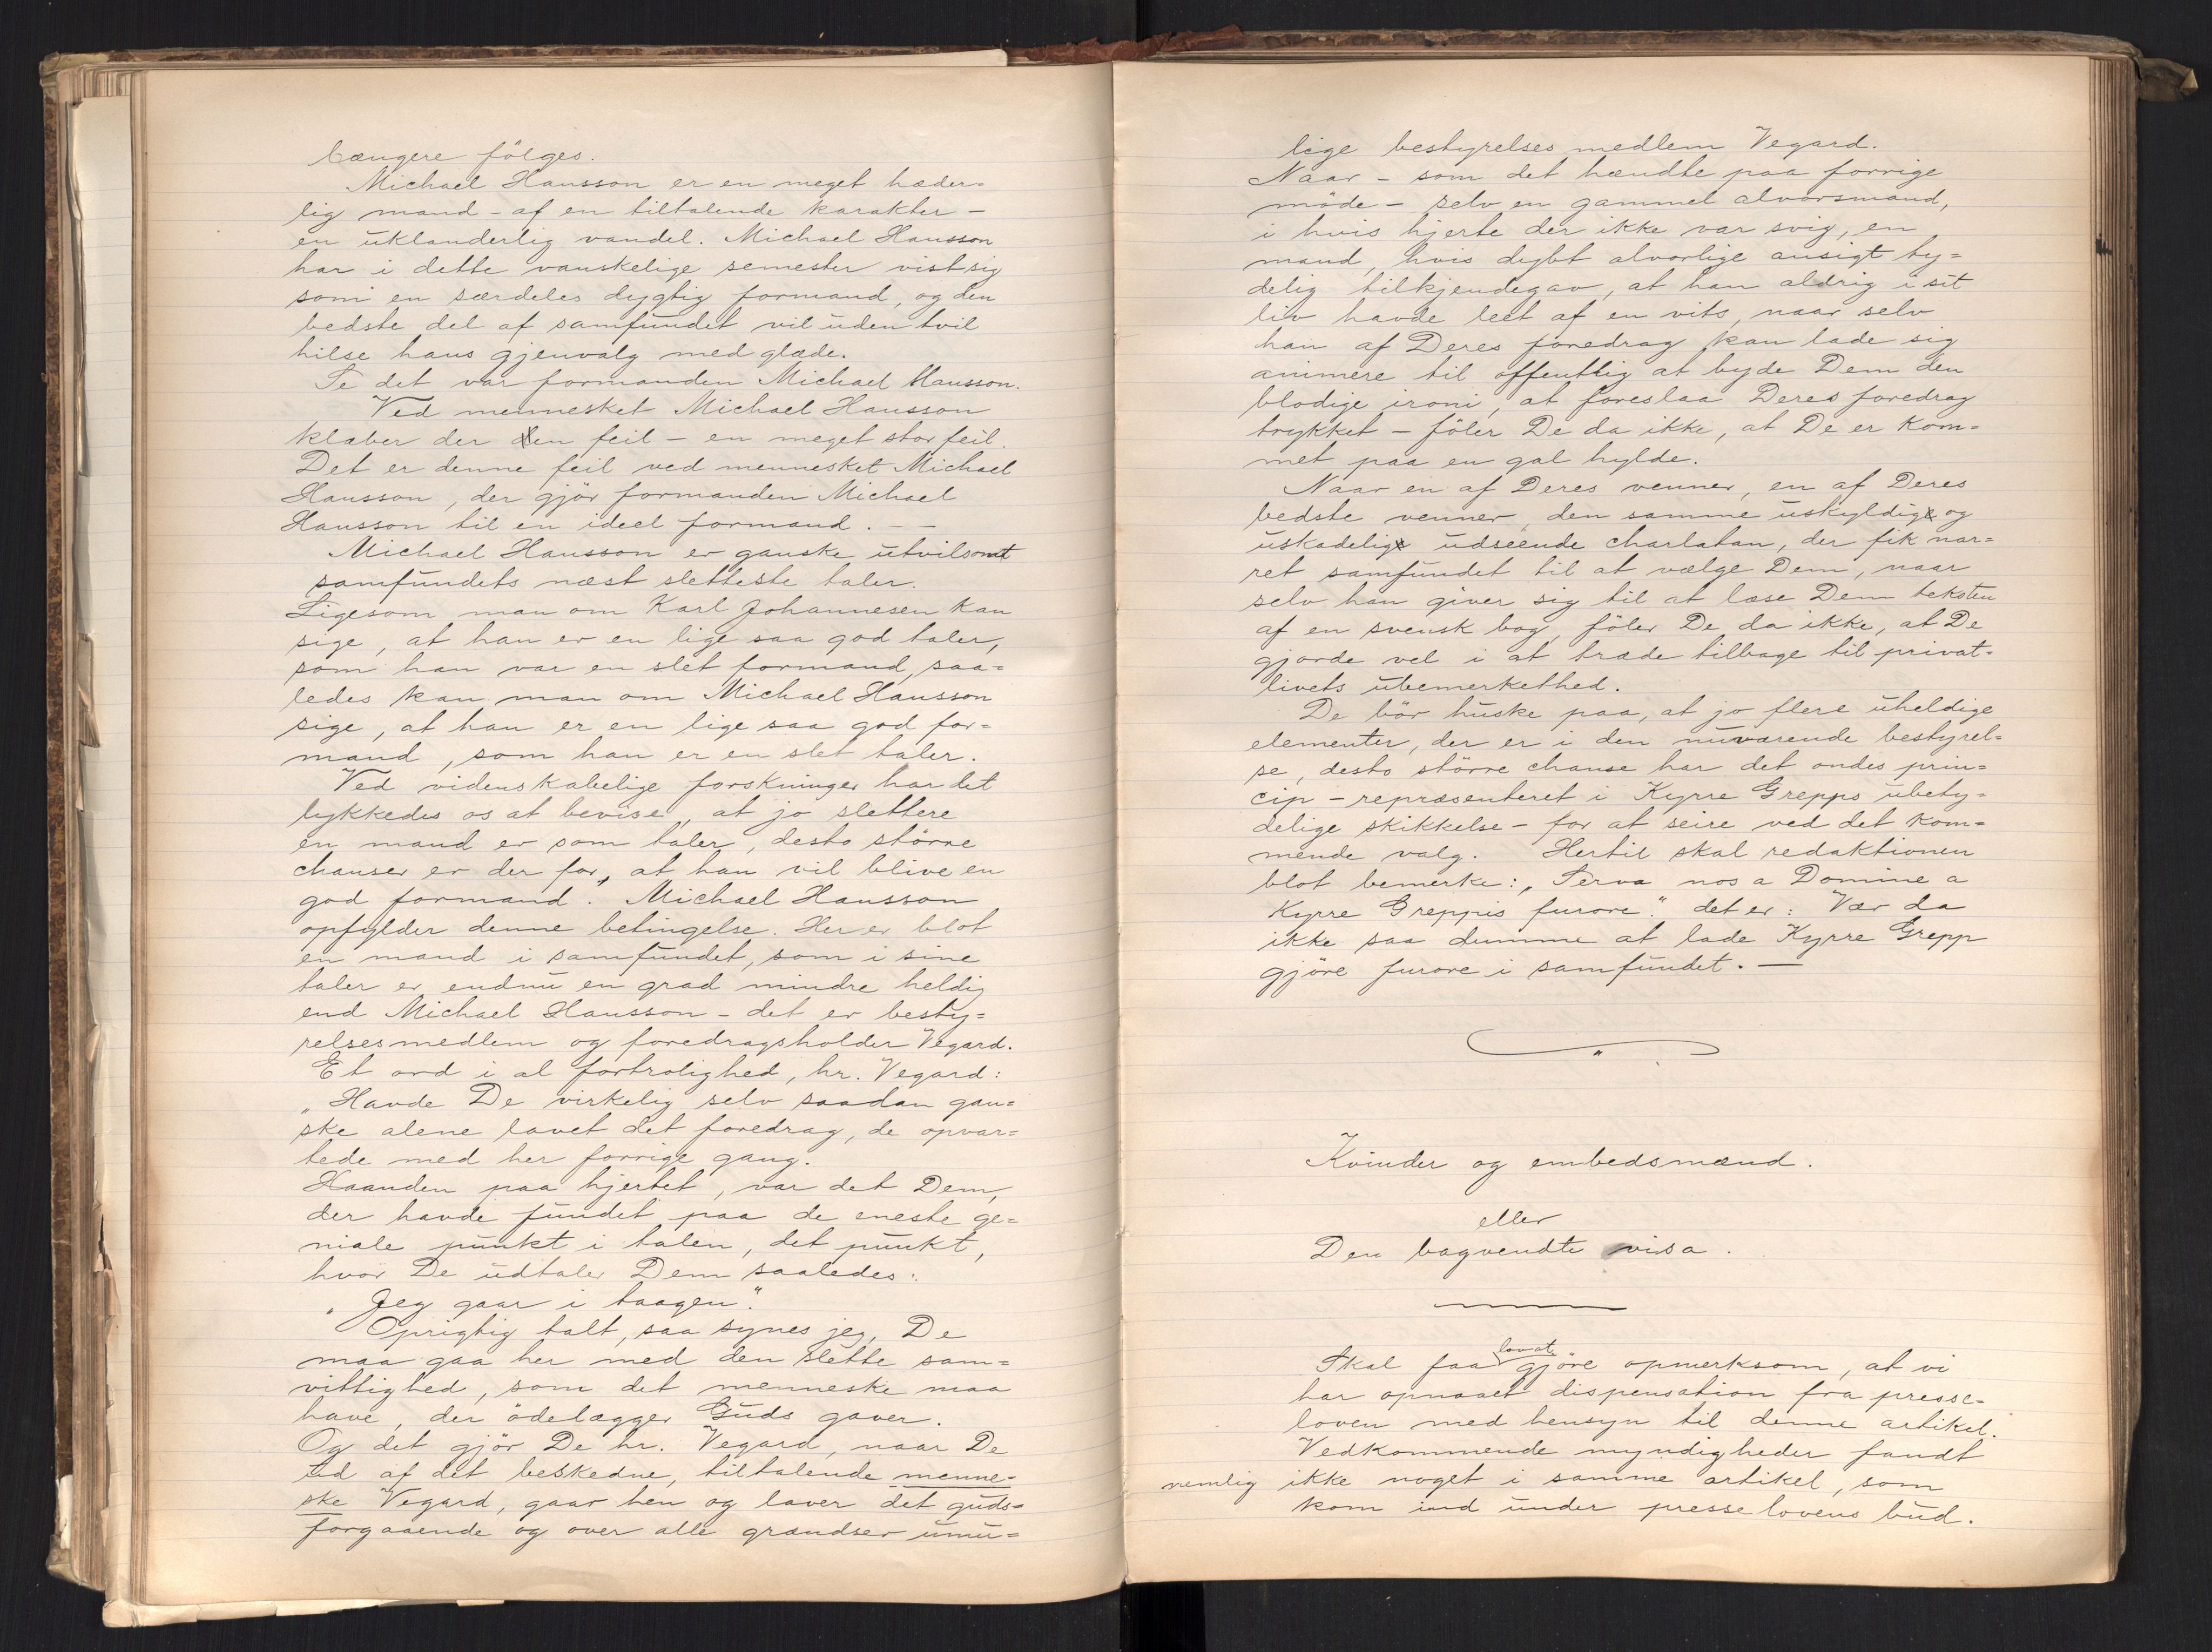 længere fölges.
Michael Hansson er en meget hæder=
lig mand - af en tiltalende karakter -
en uklanderlig vandel. Michael Hansson
har i dette vanskelige semester vist sig
som en særdeles dygtig formand, og den
bedste del af samfundet vil uden tvil
hilse hans gjenvalg med glæde.
Se det var formanden Michael Hansson.
Ved mennesket Michael Hansson
klæber der en feil - en meget stor feil.
Det er denne feil ved mennesket Michael
Hansson, der gjör formanden Michael
Hansson til en ideel formand. - -
Michael Hansson er ganske utvilsomt
samfundets næst sletteste taler.
Ligesom man om Karl Johannesen kan
sige, at han er en lige saa god taler,
som han var en slet formand, saa=
ledes kan man om Michael Hansson
sige, at han er en lige saa god for=
mand, som han er en slet taler.
Ved videnskabelige forskninger har det
lykkedes os at bevise, at jo slettere
en mand er som taler, desto större
chanser er der for, at han vil blive en
god formand. Michael Hansson
opfylder denne betingelse. Her er blot
en mand i samfundet, som i sine
taler er endnu en grad mindre heldig
end Michael Hansson - det er besty=
relsesmedlem og foredragsholder Vegard.
Et ord i al fortrolighed, hr. Vegard:
„Havde De virkelig selv saadan gan=
ske alene lavet det foredrag, de opvar=
tede med her forrige gang.
Haanden paa hjertet, var det Dem,
der havde fundet paa de eneste ge=
niale punkt i talen, det punkt,
hvor De udtaler Dem saaledes:
„Jeg gaar i taagen".
Oprigtig talt, saa synes jeg, De
maa gaa her med den slette sam=
vittighed, som det menneske maa
have, der ödelægger Guds gaver.
Og det gjör De hr. Vegard, naar De
ud af det beskedne, tiltalende menne=
ske Vegard, gaar hen og laver det guds=
forgaaende og over alle grændser umu=
lige bestyrelses medlem Vegard.
Naar - som det hændte paa forrige
möde - selv en gammel alvorsmand,
i hvis hjerte der ikke var svig, en
mand, hvis dybt alvorlige ansigt ty=
delig tilkjendegav, at han aldrig i sit
liv havde leet af en vits, naar selv
han af Deres foredrag kan lade sig
animere til offentlig at byde Dem den
blodige ironi, at foreslaa Deres foredrag
trykket - föler De da ikke, at De er kom=
met paa en gal hylde.
Naar en af Deres venner, en af Deres
bedste venner, den samme uskyldig og
uskadelig udseende charlatan, der fik nar=
ret samfundet til at vælge Dem, naar
selv han giver sig til at læse Dem teksten
af en svensk bog, föler De da ikke, at De
gjorde vel i at træde tilbage til privat=
livets ubemerkethed.
De bör huske paa, at jo flere uheldige
elementer, der er i den nuværende bestyrel=
se, desto större chanse har det ondes prin=
cip - repræsenteret i Kyrre Grepps ubety=
delige skikkelse - for at seire ved det kom=
mende valg. Hertil skal redaktionen
blot bemerke: „Serva nos a Domine a
Kyrre Greppis furore." det er: Vær da
ikke saa dumme at lade Kyrre Grepp
gjöre furore i samfundet. -
Kvinder og embedsmænd.
eller
Den bagvendte visa.
Skal faa lovat gjöre opmerksom, at vi
har opnaaet dispensation fra presse=
loven med hensyn til denne artikel.
Vedkommende myndigheder fandt
nemlig ikke noget i samme artikel, som
kom ind under presselovens bud.